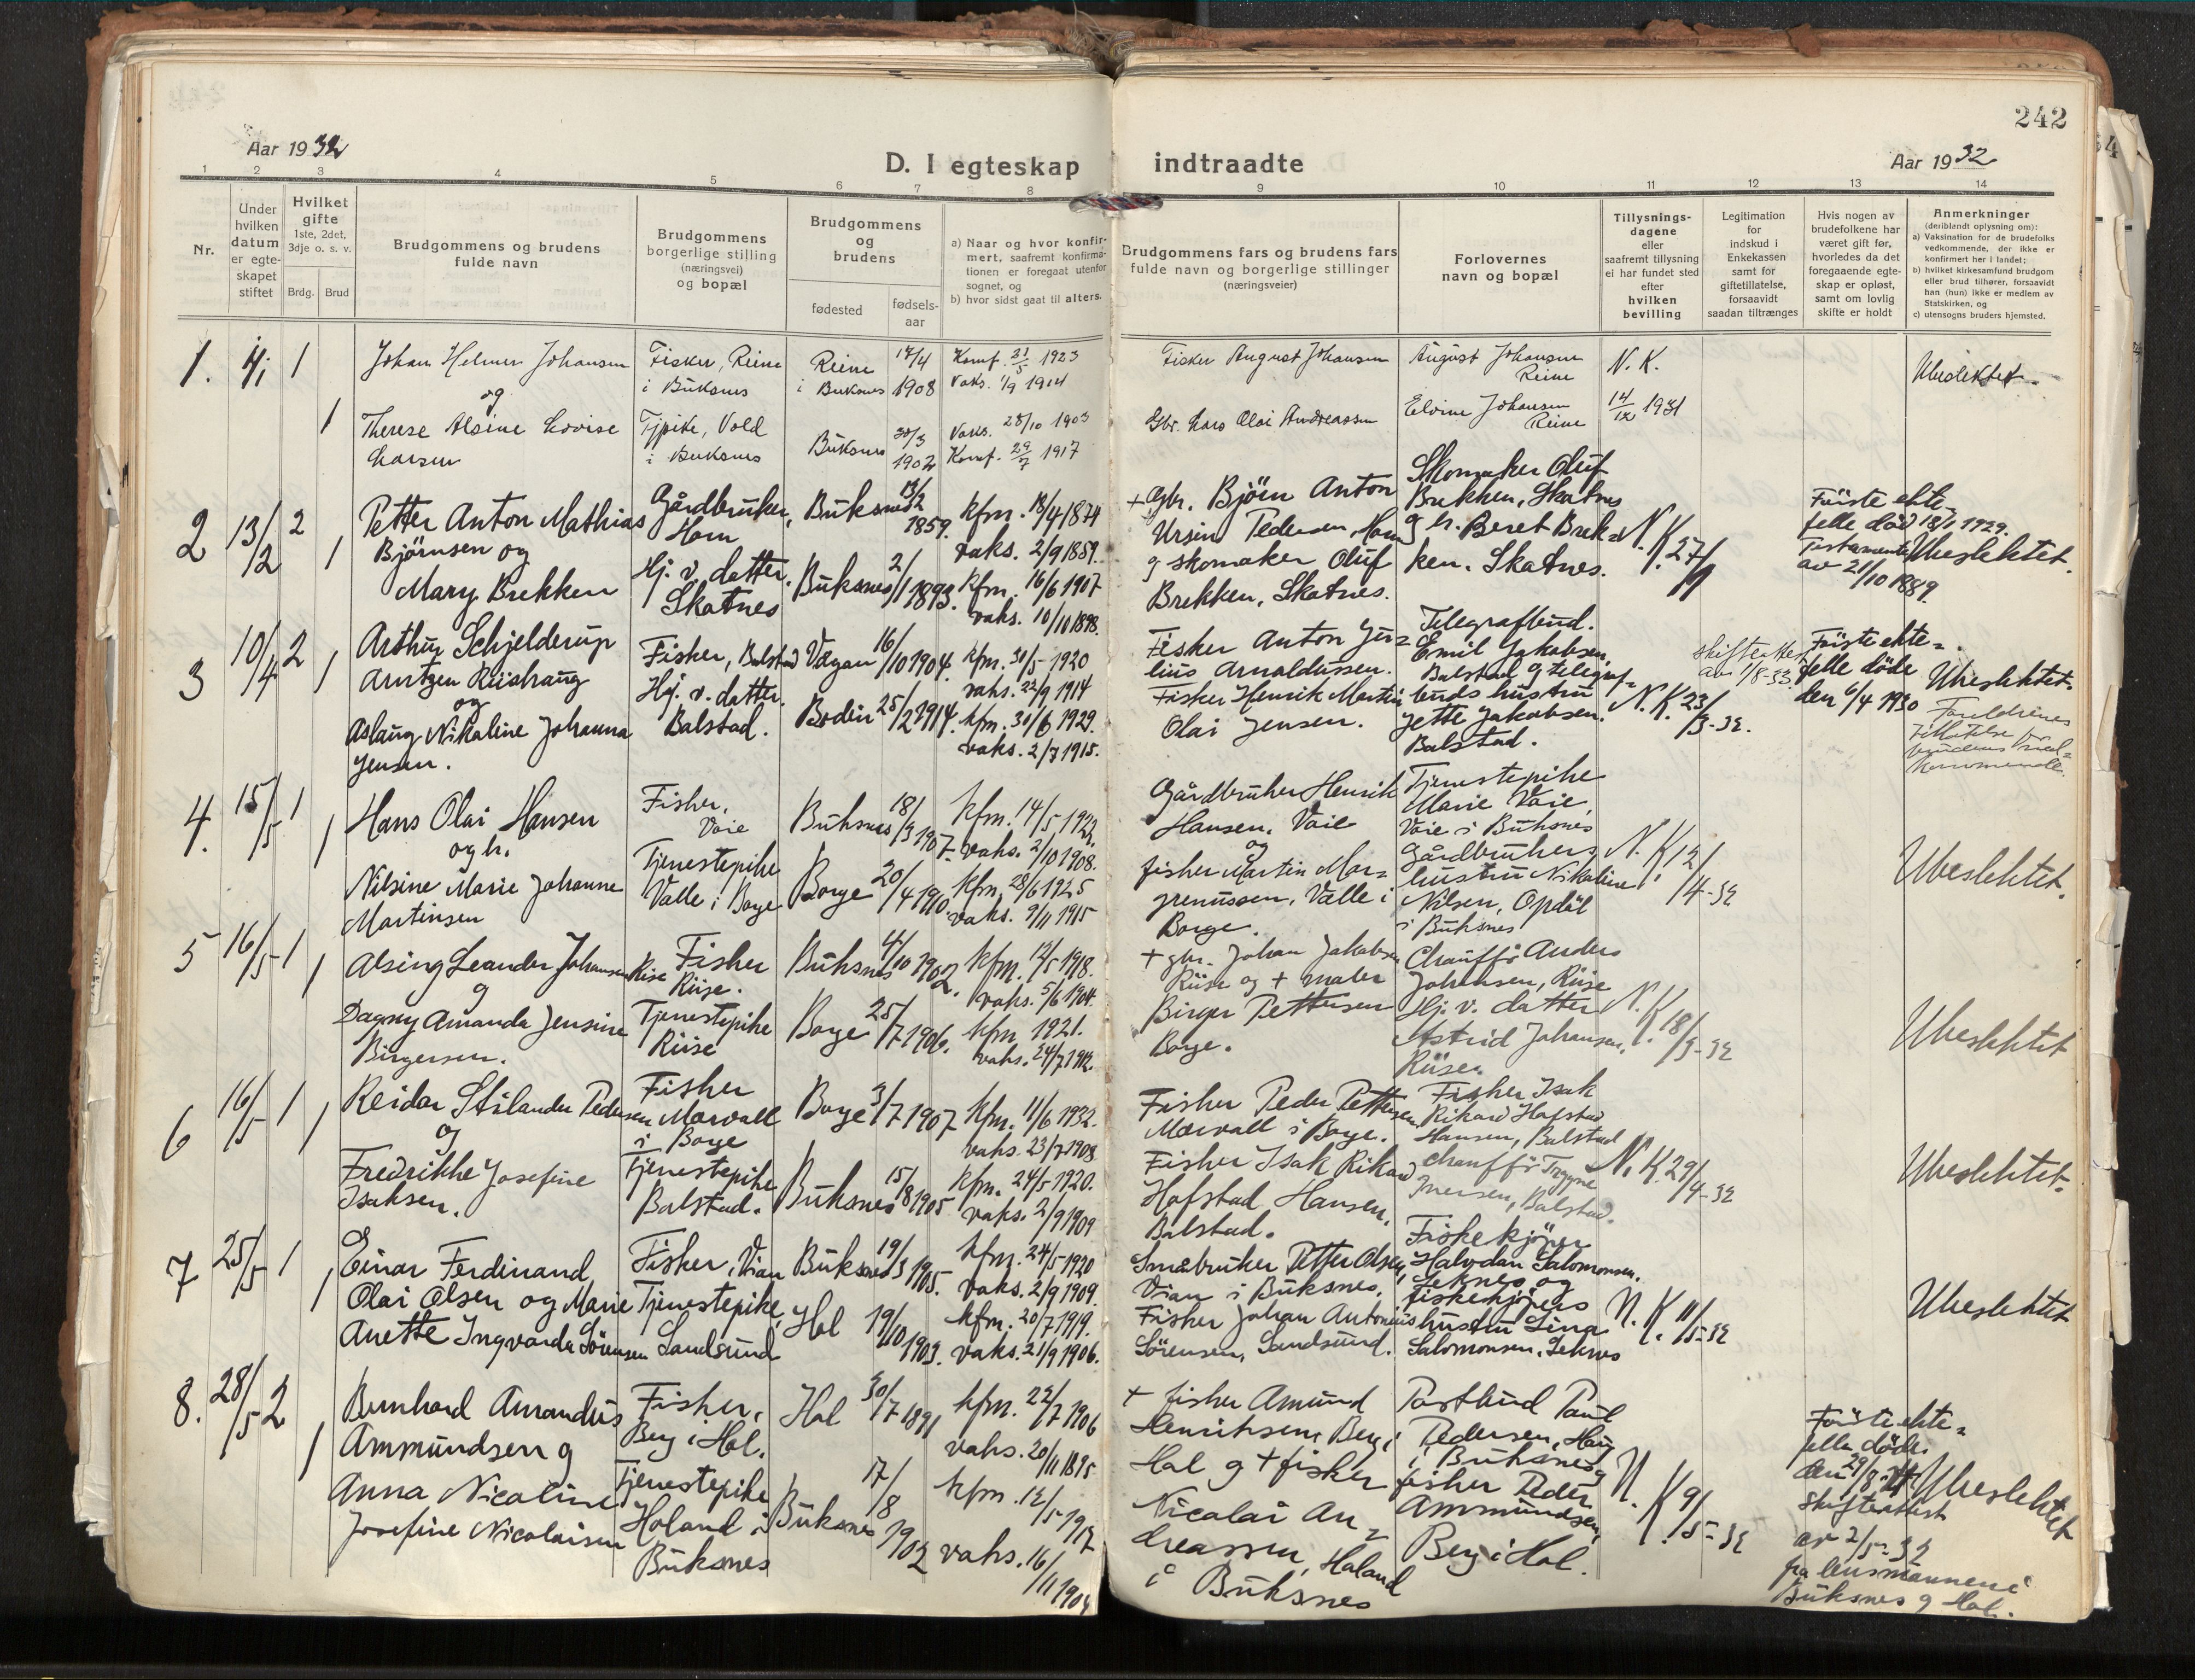 242
Aar 1932
D. I egteskap indtraadte
Aar 1932
1 2 3 4 5 6 7 8 9 10 11 12 13 14
Nr.
Under hvilken datum er egteskapet stiftet
Hvilket gifte
1ste, 2det, 3dje o. s. v.
Brdg. Brud
Brudgommens og brudens fulde navn
Brudgommens borgerlige stilling (næringsvei) og bopæl
Brudgommens og brudens
fødested
fødselsaar
a) Naar og hvor konfirmert, saafremt konfirmationen er foregaat utenfor sognet, og
b) hvor sidst gaat til alters.
Brudgommens fars og brudens fars fulde navn og borgerlige stillinger (næringsveier)
Forlovernes navn og bopæl
Tillysningsdagene eller saafremt tillysning ei har fundet sted efter hvilken bevilling
Legitimation for indskud i Enkekassen samt for giftetillatelse, forsaavidt saadan tiltrænges
Hvis nogen av brudefolkene har været gift før, hvorledes da det foregaaende egteskap er opløst, samt om lovlig skifte er holdt
Anmerkninger
(deriblandt oplysning om):
a) Vaksination for de brudefolks vedkommende, der ikke er konfirmert her i landet;
b) hvilket kirkesamfund brudgom eller brud tilhører, forsaavidt han (hun) ikke er medlem av Statskirken, og
c) utensogns bruders hjemsted.
1. 4/1 1
Johan Helmer Johansen
og
Therese Alsine Lovise
Larsen
Fisker, Reine
i Buksnes
Tjpike, Vold
i Buksnes
Reine
i Buksnes
1908
Buksnes 30/3
1902
Konf. 21/5 1923
Vaks. 1/9 1914
Vaks. 28/10 1903
Konf. 29/7 1917
Fisker August Johansen
Gbr. Lars Olai Andreassen
August Johansen
Reine
Elvine Johansen
Reine
N. K.
14/12 1931
Ubeslektet.
2 13/2 2 1
Petter Anton Mathias
Bjørnsen og
Mary Brekken
Gårdbruker,
Horn
Hj. v. datter.
Skatnes
Buksnes
1859.
Buksnes 2/1 1893.
kfm. 18/4 1874
vaks. 2/9 1859.
kfm. 16/6 1907
vaks. 10/10 1898.
+ Gbr. Bjørn Anton
Ursin Pedersen, Horn
g skomaker Oluf
Brekken, Skatnes.
Skomaker Oluf
Brekken, Skatnes
g h. Beret Brek=
ken. Skatnes.
N. K. 27/1
Første ekte=
felle død 18/1 1929.
Testamente
av 21/10 1889.
Ubeslektet.
3 10/4 2 1
Arthur Schjelderup
Arntzen Riishaug
og
Aslaug Nikoline Johanna
Jensen.
Fisker, Balstad
Hj. v. datter.
Balstad.
Vågan 16/10 1904.
Bodin 25/2 1914.
kfm. 31/5 1920
vaks. 22/9 1914
kfm. 30/6 1929.
vaks. 2/7 1915.
Fisker Anton Jen=
lius Arnoldussen.
Fisker Henrik Martin
Olai Jensen.
Telegrafbud.
Emil Jakobsen,
Balstad g telegraf=
buds hustru
Jette Jakobsen.
Balstad.
N. K. 23/3-32.
Skifteattest
av 1/8-33.
Første ekte=
felle døde
den 6/4 1930
Ubeslektet.
Foreldrenes
tillatelse for
brudens ved=
kommende.
4. 15/5 1 1
Hans Olai Hansen
og h.
Nilsine Marie Johanne
Martinsen
Fisker,
Voie
Tjenestepike
Valle i Borge
Buksnes 18/3 1907.
Borge 20/4 1910.
kfm. 14/5 1922.
vaks. 2/10 1908.
kfm. 28/6 1925
vaks. 9/11 1915
Gårdbruker Henrik
Hansen, Voie
og
fisker Martin Mor=
grenussen, Valle i
Borge.
Tjenestepike
Marie Voie,
Voie i Buksnes
Gårdbrukers
hustru Nikoline
Nilsen, Opdøl
i Buksnes
N. K. 12/4-32
Ubeslektet.
5 16/5 1 1
Alsing Leander Johansen
g
Dagny Amanda Jensine
Birgersen.
Fisker
Riise.
Tjenestepike
Riise
Buksnes 4/10 1902.
Borge 25/7 1906.
kfm. 12/5 1918.
vaks. 5/6 1904.
kfm. 1921.
vaks. 24/7 1912.
+ gbr. Johan Jakobsen
Riise og + maler
Birger Pettersen
Borge.
Chauffør Anders
Johansen, Riise
Hj. v. datter
Astrid Johansen,
Riise
N. K. 18/3-32
Ubeslektet
6 16/5 1 1
Reidar Stilander Pedersen
g
Fredrikke Josefine
Isaksen.
Fisker
Mærvoll
i Borge
Tjenestepike
Balstad.
Borge 3/7 1907
Buksnes 15/8 1905
kfm. 11/6 1932.
vaks. 23/7 1908
kfm. 24/5 1920.
vaks. 2/9 1909
Fisker Peder Pettersen,
Mærvoll i Borge.
Fisker Isak Rikard
Hofstad Hansen,
Balstad.
Fisker Isak
Rikard Hofstad
Hansen, Balstad
chauffør Trygve
Iversen, Balstad.
N. K. 29/4-32
Ubeslektet.
7 25/5 1 1
Einar Ferdinand
Olai Olsen og Marie
Anette Ingvarda Sörensen
Fisker, Vian
Tjenestepike,
Sandsund
Buksnes 19/3 1905.
Hol 19/10 1903.
kfm. 24/5 1920
vaks. 2/9 1909.
kfm. 20/7 1919.
vaks. 21/9 1906.
Småbruker Petter Olsen,
Vian i Buksnes.
Fisker Johan Antonius
Sörensen, Sandsund.
Fiskekjøper
Halvdan Salomonsen.
Leknes og
fiskekjøpers
hustru Lina
Salomonsen, Leknes
N. K. 11/5-32
Ubeslektet
8. 28/5 2 1
Bernhard Amandus
Ammundsen g
Anna Nicoline
Josefine Nicolaisen
Fisker,
Berg i Hol.
Tjenestepike
Holand i
Buksnes
Hol 30/7 1891
Buksnes 17/8 1902
kfm. 22/7 1906
vaks. 20/11 1895
kfm. 12/5 1917
vaks. 16/11 1904
+ fisker Amund
Henriksen, Berg i
Hol g + fisker
Nicolai An=
dreassen, Holand
i Buksnes
Postbud Paul
Pedersen, Haug
i Buksnes g
fisker Peder
Ammundsen,
Berg i Hol.
N. K. 9/5-32
Første ekte=
felle døde
Skifteattest
av 2/5-32
fra lensmannene i
Buksnes g Hol.
Ubeslektet